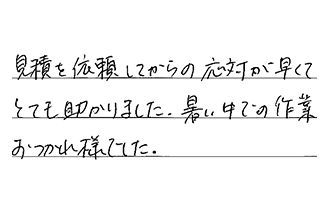 見積を依頼してからの応対が早くて
とても助かりました。暑い中での作業
おつかれ様でした。